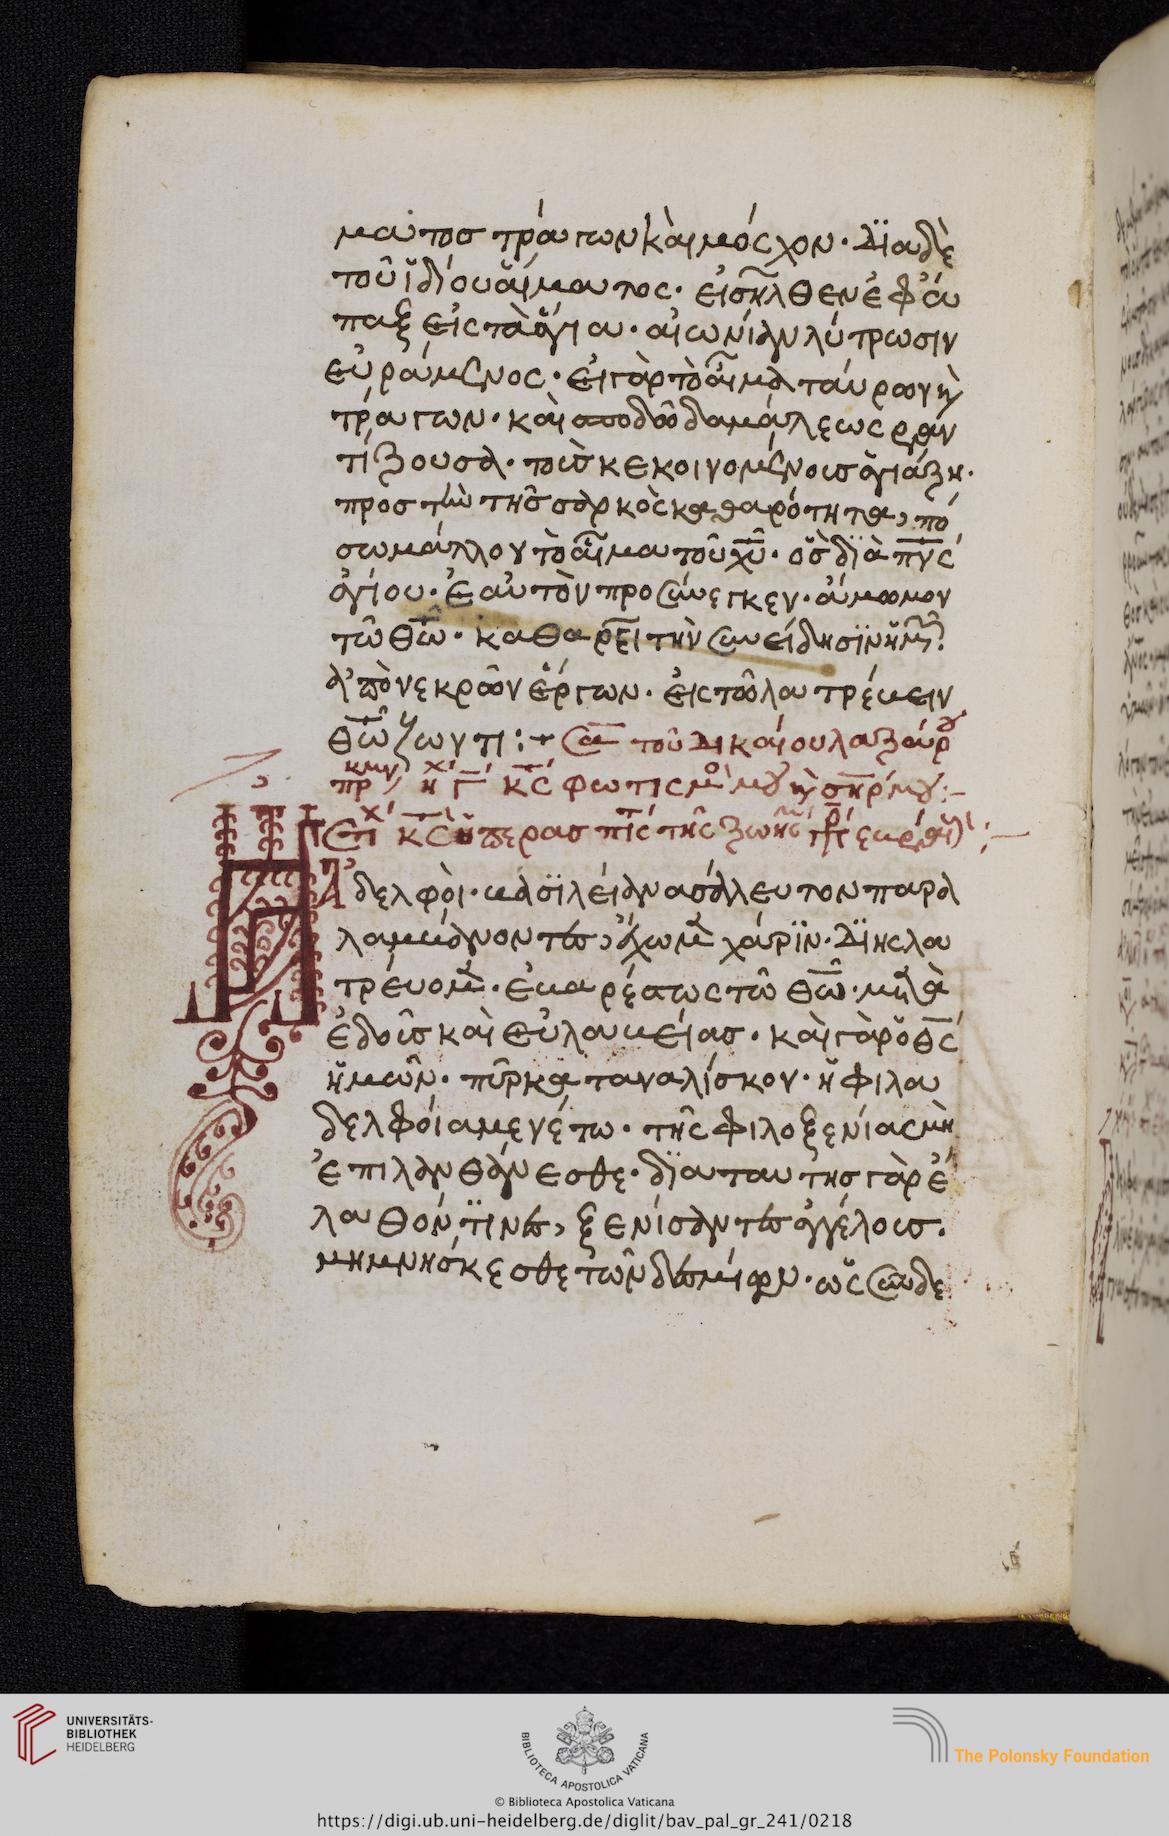 ματος τράγων καὶ μόσχων· διὰ δὲ
τοῦ ἰδίου αἵματος· εἰσῆλθεν ἐφά
παξ εἰς τὰ ἅγια· αἰωνίαν λύτρωσιν
εὑράμενος· εἰ γὰρ τὸ αἷμα ταύρων καὶ
τράγων· καὶ σποδὸς δαμάλεως ραν
τίζουσα· τοὺς κεκοινομένους ἁγιάζη·
πρὸς τὴν τῆς σαρκὸς καθαρότητα, πό
σω μάλλον τὸ αἷμα τοῦ χῦ· ὃς διὰ πνς
ἁγίου· ἑαυτὸν προσήνεγκεν· ἄμωμον
τῶ θῶ· καθαρεῖ τὴν συνείδησϊν ἡμῶν·
ἀπὸ νεκρῶν ἔργων· εἰς τὸ λατρέυειν
θῶ ζωντι:+ Σα τοῦ δικαίου λαζάρου
προκμν, ἦχ γ κς φωτισμός μου καὶ σηρ μου:–
Στίχ κς ὑπερασπις τῆς ζωῆς
Ἀδελφοὶ· βασϊλείαν ασάλευτον παρα
λαμβάνοντες, ἔχωμεν χάρϊν· δϊ ης λα
τρέυομεν· ἐυαρέστως τῶ θῶ· μετὰ
ἐδοῦς καὶ εὐλαυείας· καὶ γὰρ ὁ θς
ἡμῶν· πῦρ καταναλίσκον· ἡ φιλα
δελφία μενέτω· τῆς φιλοξενίας μὴ
ἐπιλανθάνεσθε· δϊα ταυτης γὰρ ἔ
λαθόν τϊνες, ξενίσαντες ἀγγέλους·
μημνήσκεσθε τῶν δεσμίων· ὡς συνδε
UNIVERSITÄTS-
BIBLIOTHEK
HEIDELBERG
BIBLIOTECA APOSTOLICA VATICANA
The Polonsky Foundation
© Biblioteca Apostolica Vaticana
https://digi.ub.uni-heidelberg.de/diglit/bav_pal_gr_241/0218